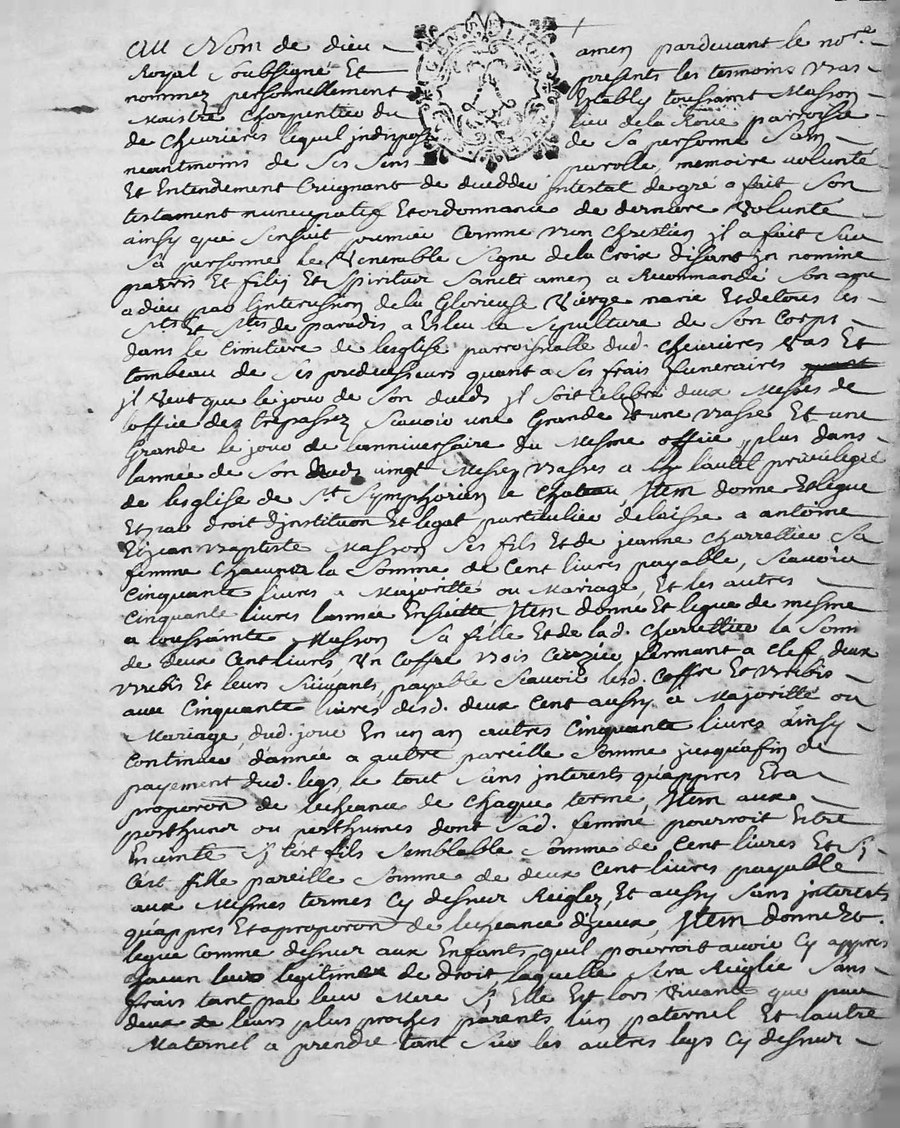 GEN. DE LION
Au Nom de dieu amen pardevant le no.re
Royal Soubsigné Et presents les tesmoins bas
nommez personnellement Estably toussaint Masson
Maistre Charpentier du lieu de la Roue parroisse
de cheurières lequel indispozé de Sa personne Sain
neantmoins de Ses Sens parolle, memoire volunté
Et Entendement Craignant de decedder Intestat de gré a fait Son
testament nuncupatif Et ordonnance de derniere Volunté
ainsy que Sensuit premier Comme bon Chrestien il a fait Sur
Sa personne le Venerable Signe de la Croix disant In nomine
patris Et filij Et Spiritus Sancti amen a Recommandé Son ame
a dieu par lintercession de la Glorieuse Vierge marie Et de tous les
Sts Et Stes de paradis a Esleu la Sepulture de Son Corps
dans le Cimitiere de lesglise parroissialle dud. cheurières Vas Et
tombeau de Ses predecesseurs quant a Ses frais funeraires
jl Veut que le jour de Son deceds jl Soit Celebré deux Messes de
loffice des trepassez Scavoir une Grande Et une basse Et une
Grande le jour de lanniversaire du Mesme office, plus dans
lannée de Son deceds vingt Messes basses a lautel privilegié
de lesglise de St Symphorien le Chateau, Item donne Et legue
Et par droit dinstitution Et legat particulier delaisse a antoine
Et jean baptiste Masson Ses fils Et de jeanne Charrellier Sa
femme Chacun la Somme de Cent livres payable, Scavoir
Cinquante livres a Majorité ou Mariage, Et les autres
Cinquante livres lannée Ensuitte, Item donne Et legue de mesme
a toussainte Masson Sa fille Et de lad. Charrellier la Somme
de deux Cent livres, Un Coffre bois Cerizier fermant a Clef deux
brebis Et leurs Suivants, payable Scavoir lesd. Coffre Et brebis
avec Cinquante livres desd. deux Cent aussy a Majorité ou
Mariage, dud. jour En un an autres Cinquante livres ainsy
Continuer dannée a autre pareille Somme jusquafin de
payement dud. legs, le tout Sans interests quappres Et a
proporon de lecheance de Chaque terme, Item aux
posthume ou posthumes dont Sad. femme pourroit Estre
Enceinte Sy cest fils Semblable Somme de Cent livres Et Sy
Cest fille pareille Somme de deux Cent livres payable
aux Mesmes termes Cy dessus Reiglez, Et aussy Sans interests
quappres Et a proporon de lecheance dyceux, Item donne Et
legue Comme dessus aux Enfants quil pourroit avoir Cy appres
chacun leur legitime de droit laquelle Sera Reiglée Sans
frais tant par leur Mere Sy Elle Est lors Vivante que par
deux de leurs plus proches parents lun paternel Et lautre
Maternel a prendre tant Sur les autres legs Cy dessus